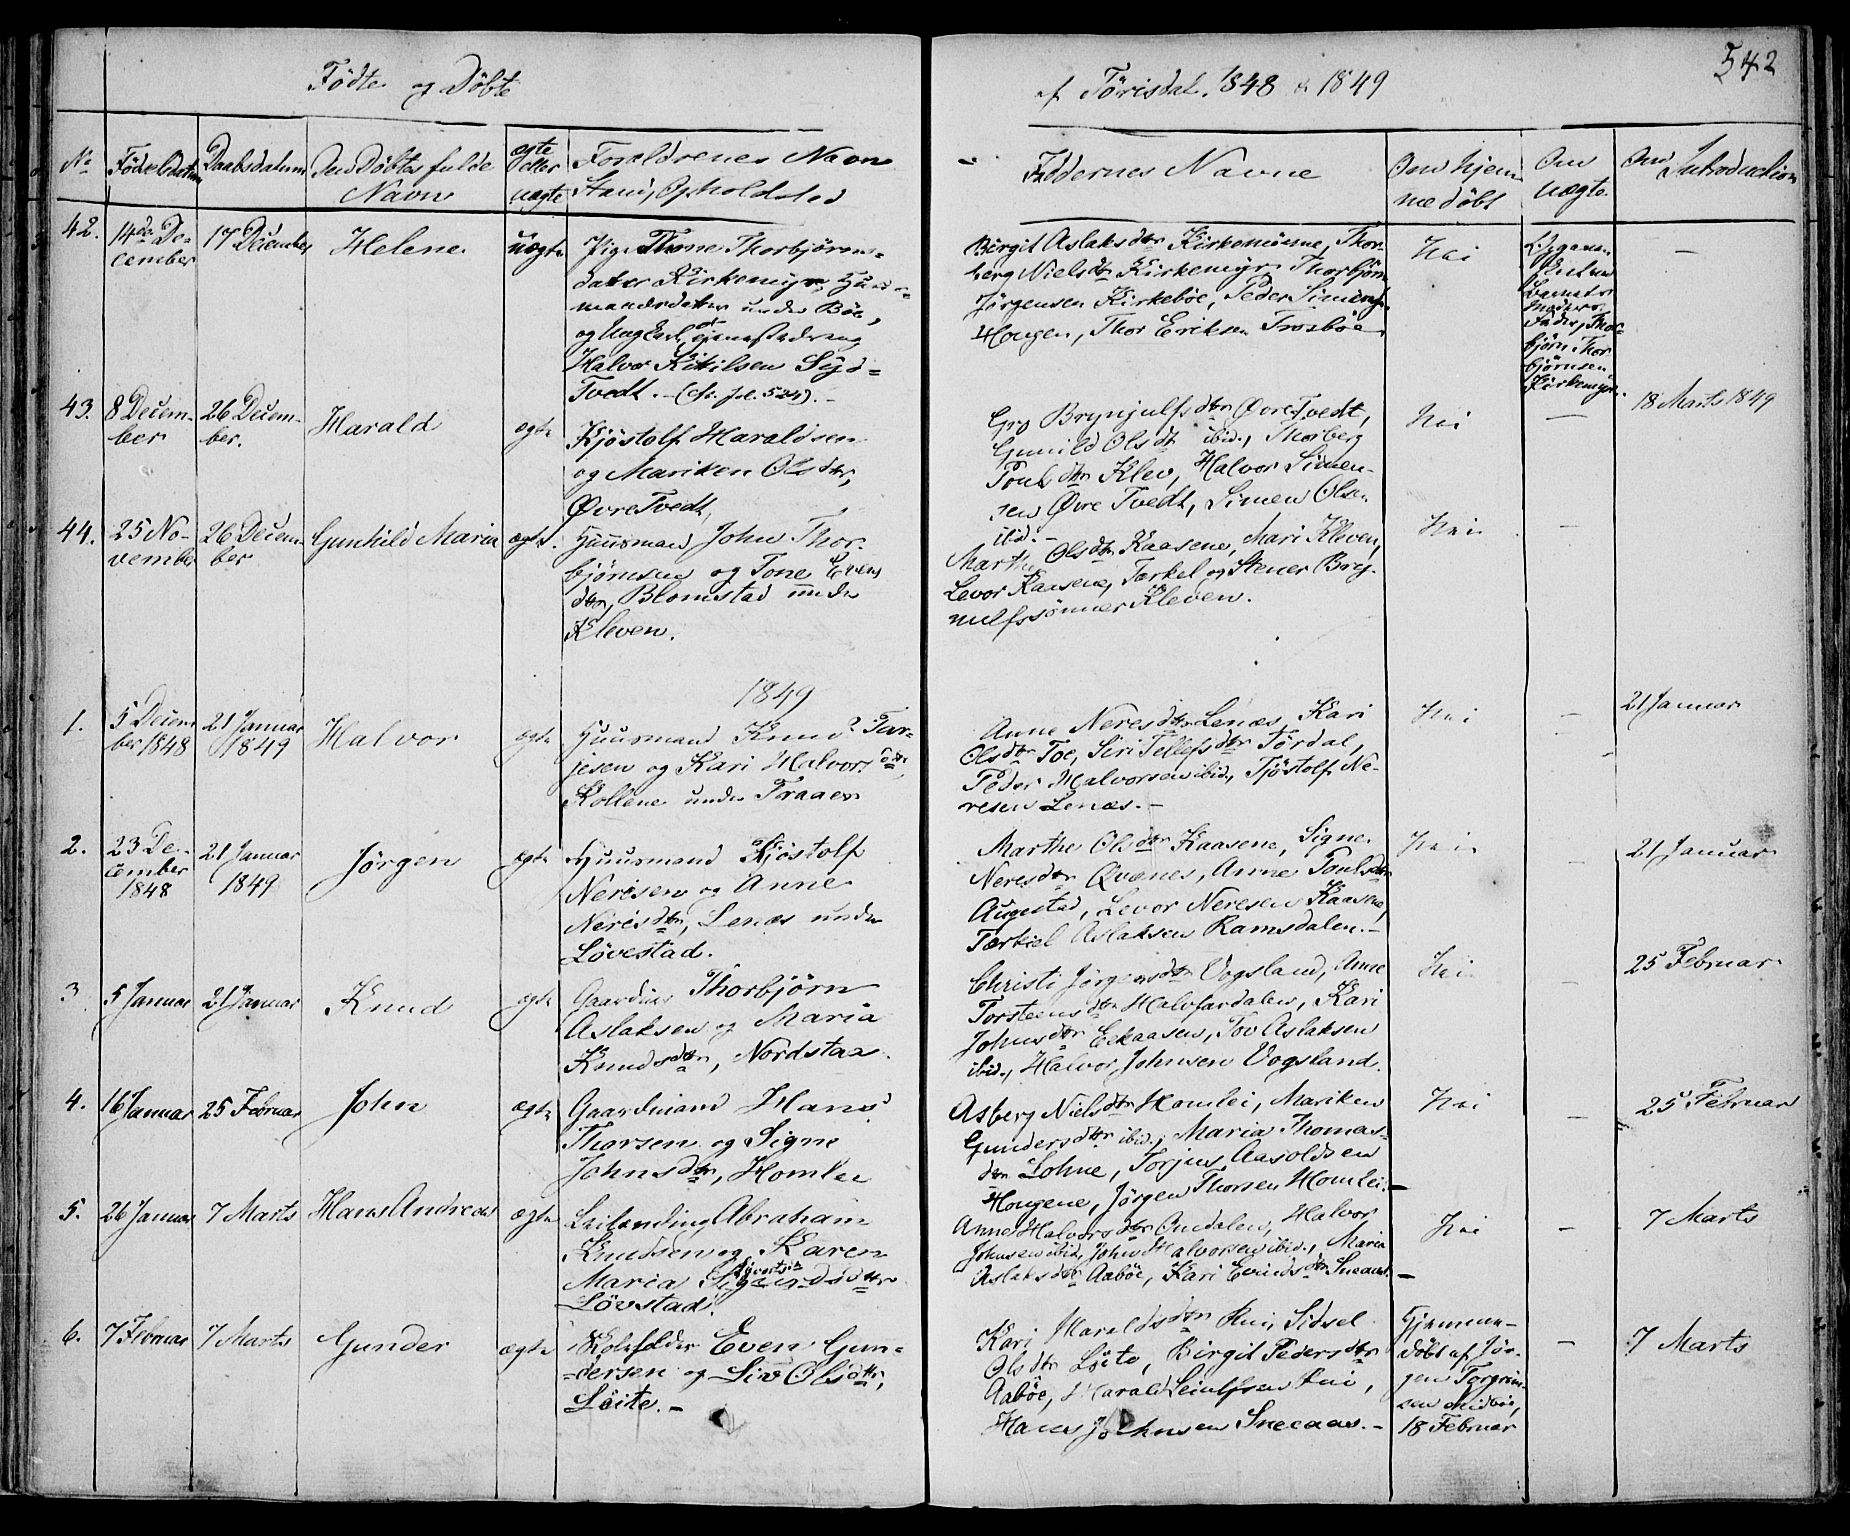 542
Födte og Döbte
af Törisdal. 1848 & 1849
No
Födselsdatum
Daabsdatum
Den Döbtes fulde
Navn
ægte
eller
uægte
Forældrenes Navn
Stand, Opholdsted
Faddernes Navne
Om hjem-
medöbt
Om
uægte
Om Introduction
42.
14de De-
cember
17 December
Helene
uægte
Pige Thone Thorbjörns-
datter Kirkemyr, Huus-
mandsdatter under Böe,
og Ungkarl,
Halvor Kittilsen Syd-
Tvedt. - (cfr. fol. 524). -
Birgit Aslaksdtr Kirkemönne, Thor-
berg Nielsdtr Kirkemyr, Thorbjörn
Jörgensen Kirkeböe, Peder Simens.
Hougen, Thor Eriksen Trosböe
Nei
Opgaven
Barnets
Moders
Fader, Thor-
björn Thor-
björnsen
Kirkemyr.
-
43.
8 Decem-
ber
26 Decem-
ber.
Harald
ægte
Kjöstolf Haraldsen
og Mariken Olsdtr,
Øvre Tvedt,
Gro Brynjulfsdtr Øvre Tvedt,
Gunild Olsdtr ibid., Thorberg
Pouls dtr Klev, Halvor Simen-
sen Øvre Tvedt, Simen Olsen
ibid. -
Nei
-
18 Marts 1849
44.
25 No-
vember
26 Decem-
ber
Gunhild Maria
ægte.
Huusmand John Thor-
björnsen og Tone Evens
dtr, Blomstad under
Kleven.
Marthe Olsdtr Kaasene, Mari Kleven,
Levor Kaasene, Tarkel og Stener Bryn-
nulfssönner Kleven.
Nei
-
1849
1.
5 Decem
ber 1848
21 Januar
1849
Halvor
ægte
Huusmand Knud Tar-
jesen og Kari Halvorsdtr,
Kollene under Traaen
Anne Neresdtr Lenæs, Kari
Olsdtr Toe, Siri Tellefsdtr Tördal,
Peder Halvorsen ibid., Tjöstolf Ne-
resen Lenæs. -
Nei
-
21 Januar
2.
23 De-
cember
1848
21 Januar
1849
Jörgen
ægte
Huusmand Kjöstolf
Nerisen og Anne
Nerisdtr, Lenæs under
Lövestad.
Marthe Olsdtr Kaasene, Signe
Neresdtr Qvænes, Anne Poulsdtr
Augestad, Levor Neresen Kaasene,
Tærkiel Aslaksen Ramsdalen. -
Nei
-
21 Januar
3
5 Januar
21 Januar
Knud
ægte
Gaardmd Thorbjörn
Aslaksen og Maria
Knudsdtr, Nordstaa.
Christi Jörgensdtr Vogsland, Anne
Torsteensdtr Halvfardalen, Kari
Johnsdtr Eekaasen, Tov Aslaksen
ibid., Halvor Johnsen Vogsland.
Nei
25 Februar
4.
16 Januar
25 Februar
John
ægte
Gaardmand Hans
Thorsen og Signe
Johnsdtr, Homlei
Asberg Nielsdtr Homlei, Mariken
Gundersdtr ibid., Maria Thomas-
dtr Lohne, Torjus Aasoldsen
Hougene, Jörgen Thorsen Homlei. -
Nei
-
25 Februar
5.
26 Januar
7 Marts
Hans Andreas
ægte
Leilending Abraham
Knudsen og Karen
Maria Sigurdsdtr
Sivertsdtr
Lövstad.
Anne Halvorsdtr Omdalen, Halvor
Johnsen ibid., John Halvorsen ibid., Maria
Aslaksdtr Aaböe, Kari Evindsdtr Sneaas. -
Nei
-
7 Marts
6.
7 Februar
7 Marts
Gunder
ægte
Even Gun-
dersen og Liv Olsdtr,
Löite. -
Kari Haraldsdtr Rui, Sidsel
Olsdtr Löite, Birgit Pedersdtr
Aaböe, Harald Leiulfsen Rui,
Hans Johnsen Sneeaas. -
Hjemme-
döbt af Jör-
gen Torgrim-
sen Midböe,
18 Februar
-
7 Marts